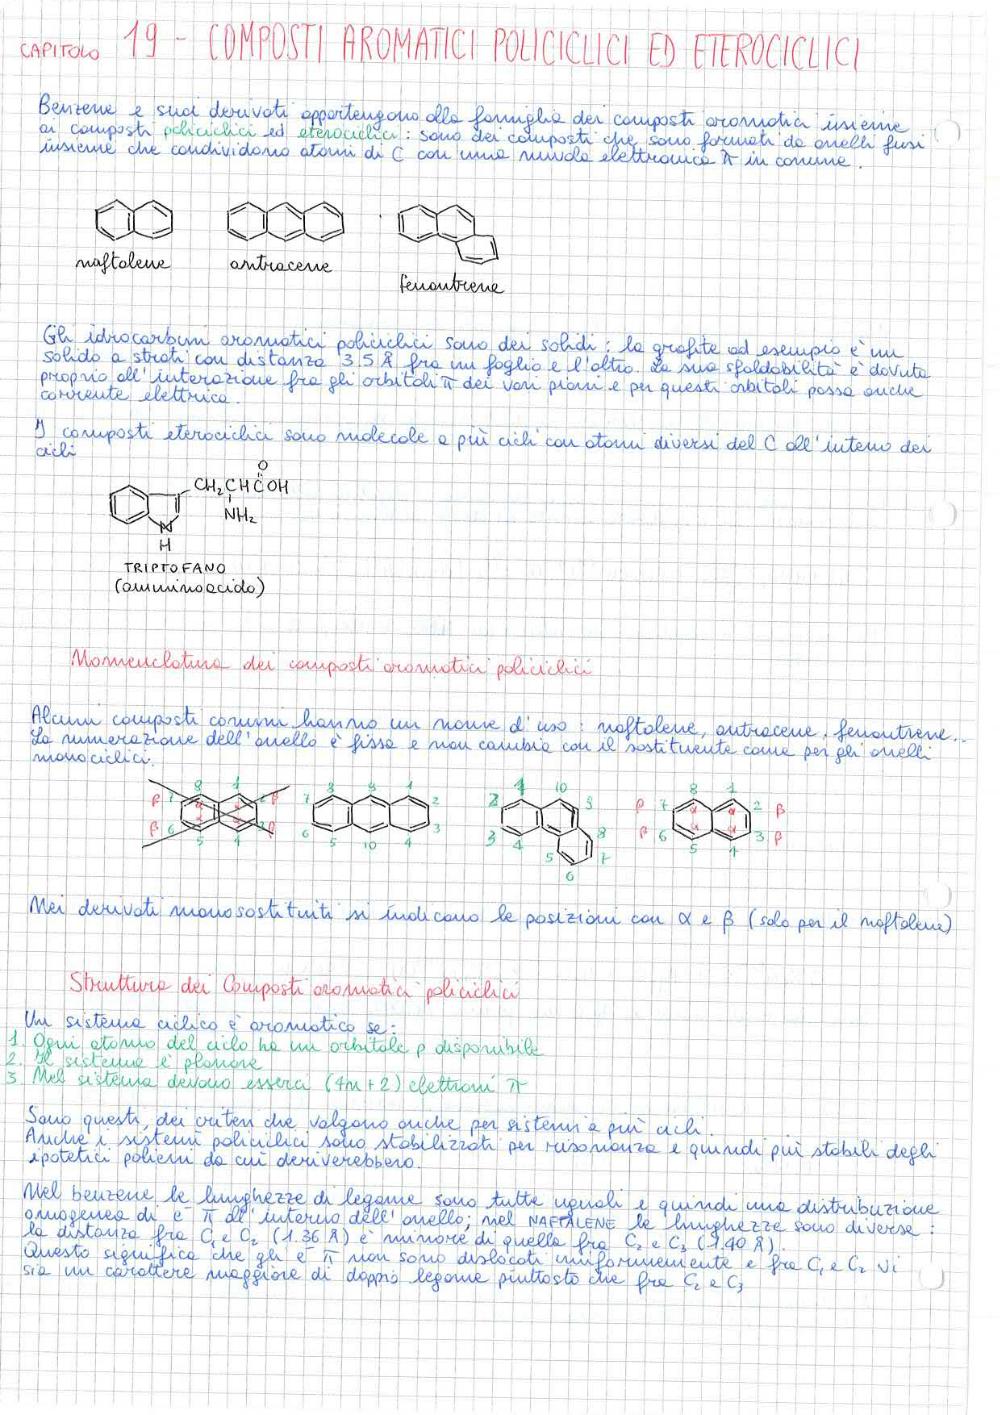 CAPITOLO 19 - COMPOSTI AROMATICI POLICICLICI ED ETEROCICLICI
Benzene e suoi derivati appartengono alla famiglia dei composti aromatici insieme
ai composti policiclici ed eterociclici: sono dei composti che sono formati da anelli fusi
insieme che condividono atomi di C con una nuvola elettronica π in comune.
naftalene antracene fenantrene
Gli idrocarburi aromatici policiclici sono dei solidi: la grafite ad esempio è un
solido a strati con distanza 3.5 Å fra un foglio e l'altro. La sua sfaldabilità è dovuta
proprio all'interazione fra gli orbitali π dei vari piani e per questi orbitali passa anche
corrente elettrica.
I composti eterociclici sono molecole a più cicli con atomi diversi del C all'interno dei
cicli
O
CH₂CHCOH
NH₂
N
H
TRIPTOFANO
(amminoacido)
Nomenclatura dei composti aromatici policiclici
Alcuni composti comuni hanno un nome d'uso: naftalene, antracene, fenantrene...
La numerazione dell'anello è fissa e non cambia con il sostituente come per gli anelli
monociclici.
8 1 8 9 1 1 10 8 1
β 7 α α 2 β 7 2 2 9 β 7 α α 2 β
β 6 α α 3 β 6 3 3 8 β 6 α α 3 β
5 4 5 10 4 4 5 7 5 4
6
Nei derivati monosostituiti si indicano le posizioni con α e β (solo per il naftalene)
Struttura dei Composti aromatici policiclici
Un sistema ciclico è aromatico se:
1. Ogni atomo del ciclo ha un orbitale p disponibile
2. Il sistema è planare
3 Nel sistema devono esserci (4n+2) elettroni π
Sono questi, dei criteri che valgono anche per sistemi a più cicli.
Anche i sistemi policiclici sono stabilizzati per risonanza e quindi più stabili degli
ipotetici polieni da cui deriverebbero.
Nel benzene le lunghezze di legame sono tutte uguali e quindi una distribuzione
omogenea di e⁻ π all'interno dell'anello; nel NAFTALENE le lunghezze sono diverse:
la distanza fra C₁ e C₂ (1.36 Å) è minore di quella fra C₂ e C₃ (1.40 Å).
Questo significa che gli e⁻ π non sono dislocati uniformemente e fra C₁ e C₂ vi
sia un carattere maggiore di doppio legame piuttosto che fra C₂ e C₃